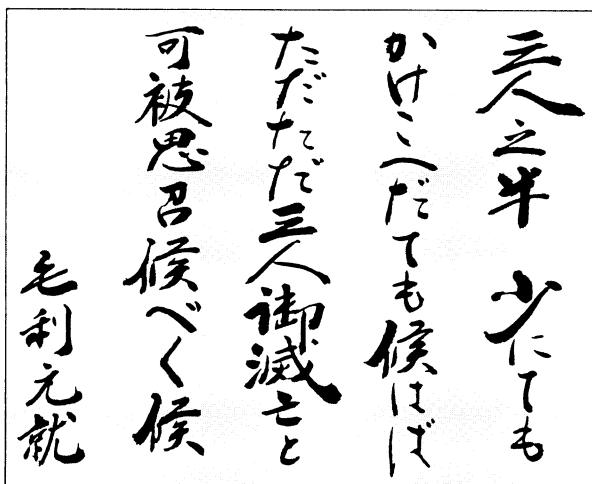 三人之半　少にても
かけこへだても候はば
ただただ三人御滅亡と
可被思召候べく候
毛利元就